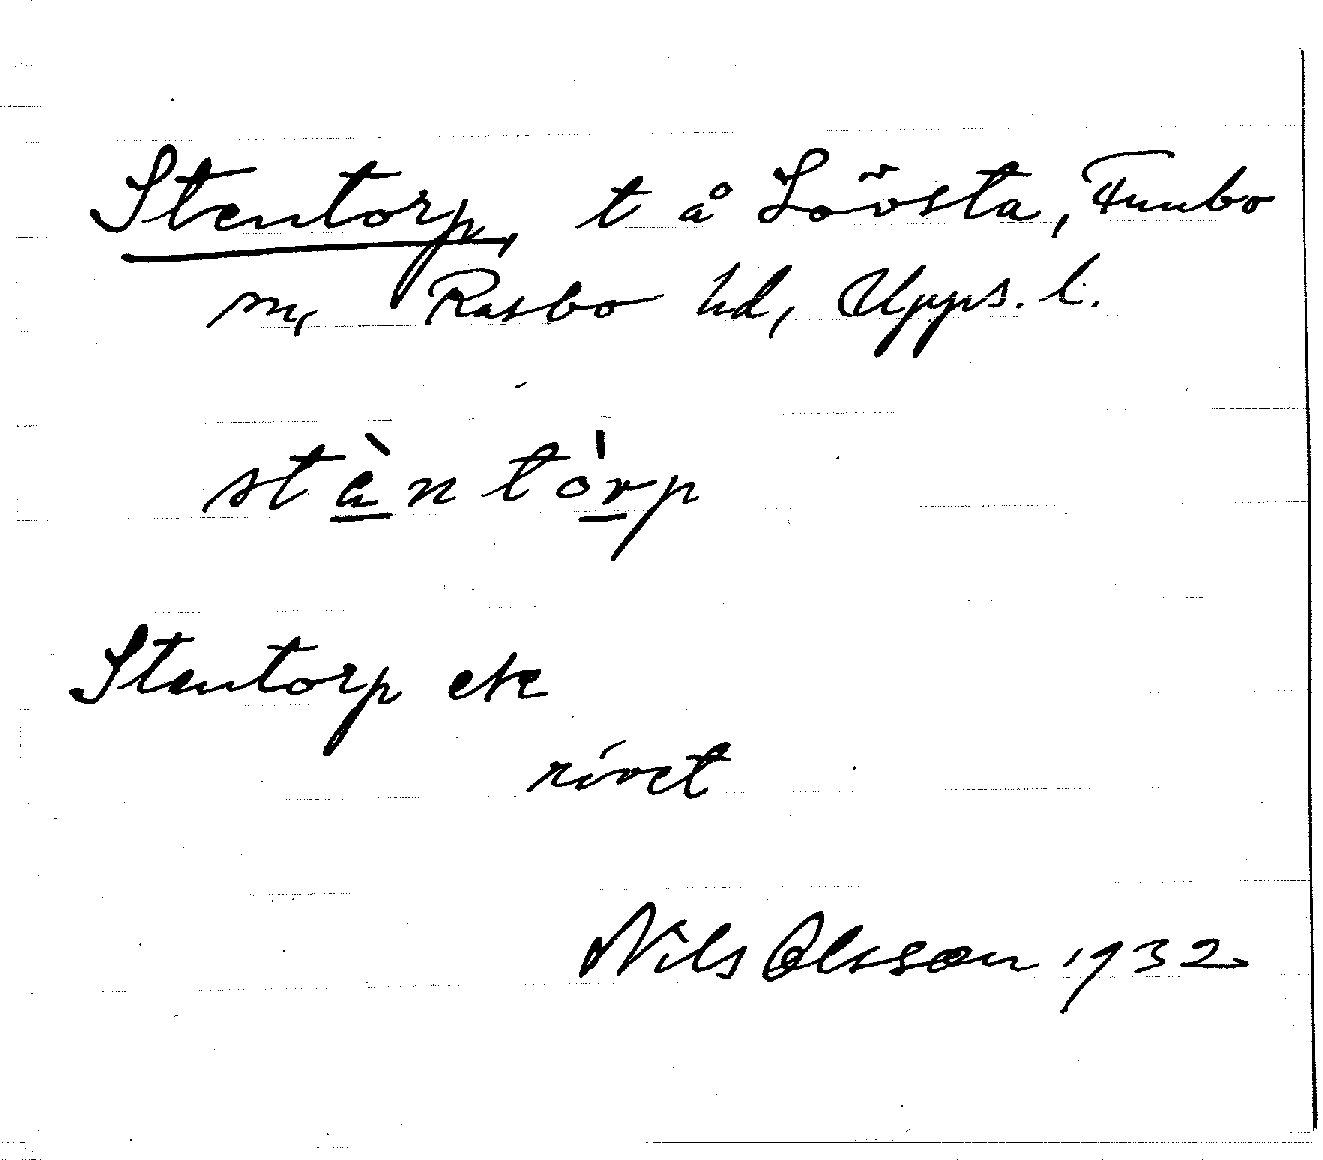 Stentorp, t å Lövsta, Funbo
sn, Rasbo hd, Upps. l.
stèntòrp
Stentorp ek
rivet
Nils Olsson 1932